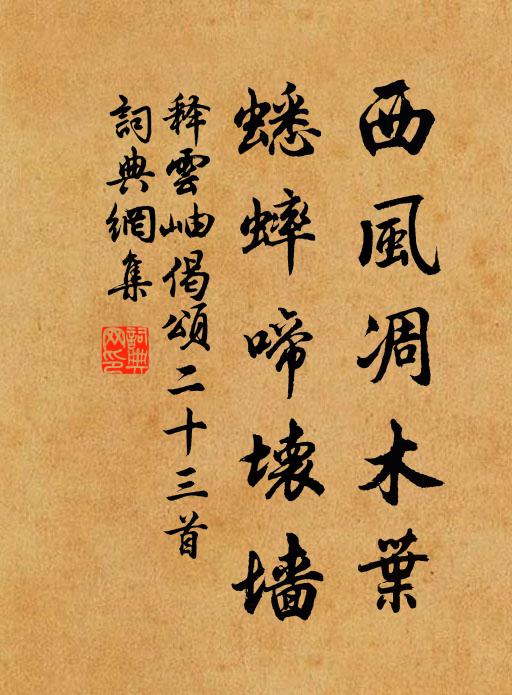 西風凋木葉
蟋蟀啼壊墙
释雲岫偈頌二十三首
詞典網集
詞典网印